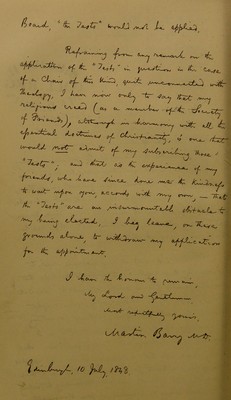 Board, "the Tests" would not be applied.
Refraining from any remark on the
application of the "Tests" in question in the case
of a Chair of this kind, quite unconnected with
Theology, I have now only to say that my
religious creed (as a member of the Society
of Friends), although in harmony with all the
essential doctrines of Christianity, is one that
would not admit of my subscribing those
"Tests", and that as the experience of my
friends, who have since done me the kindness
to wait upon you, accords with my own, — that
the "Tests" are an insurmountable obstacle to
my being elected. I beg leave, on these
grounds alone, to withdraw my application
for the appointment.
I have the honour to remain,
My Lord and Gentlemen
Most respectfully yours,
Martin Barry M.D.
Edinburgh, 10 July 1848